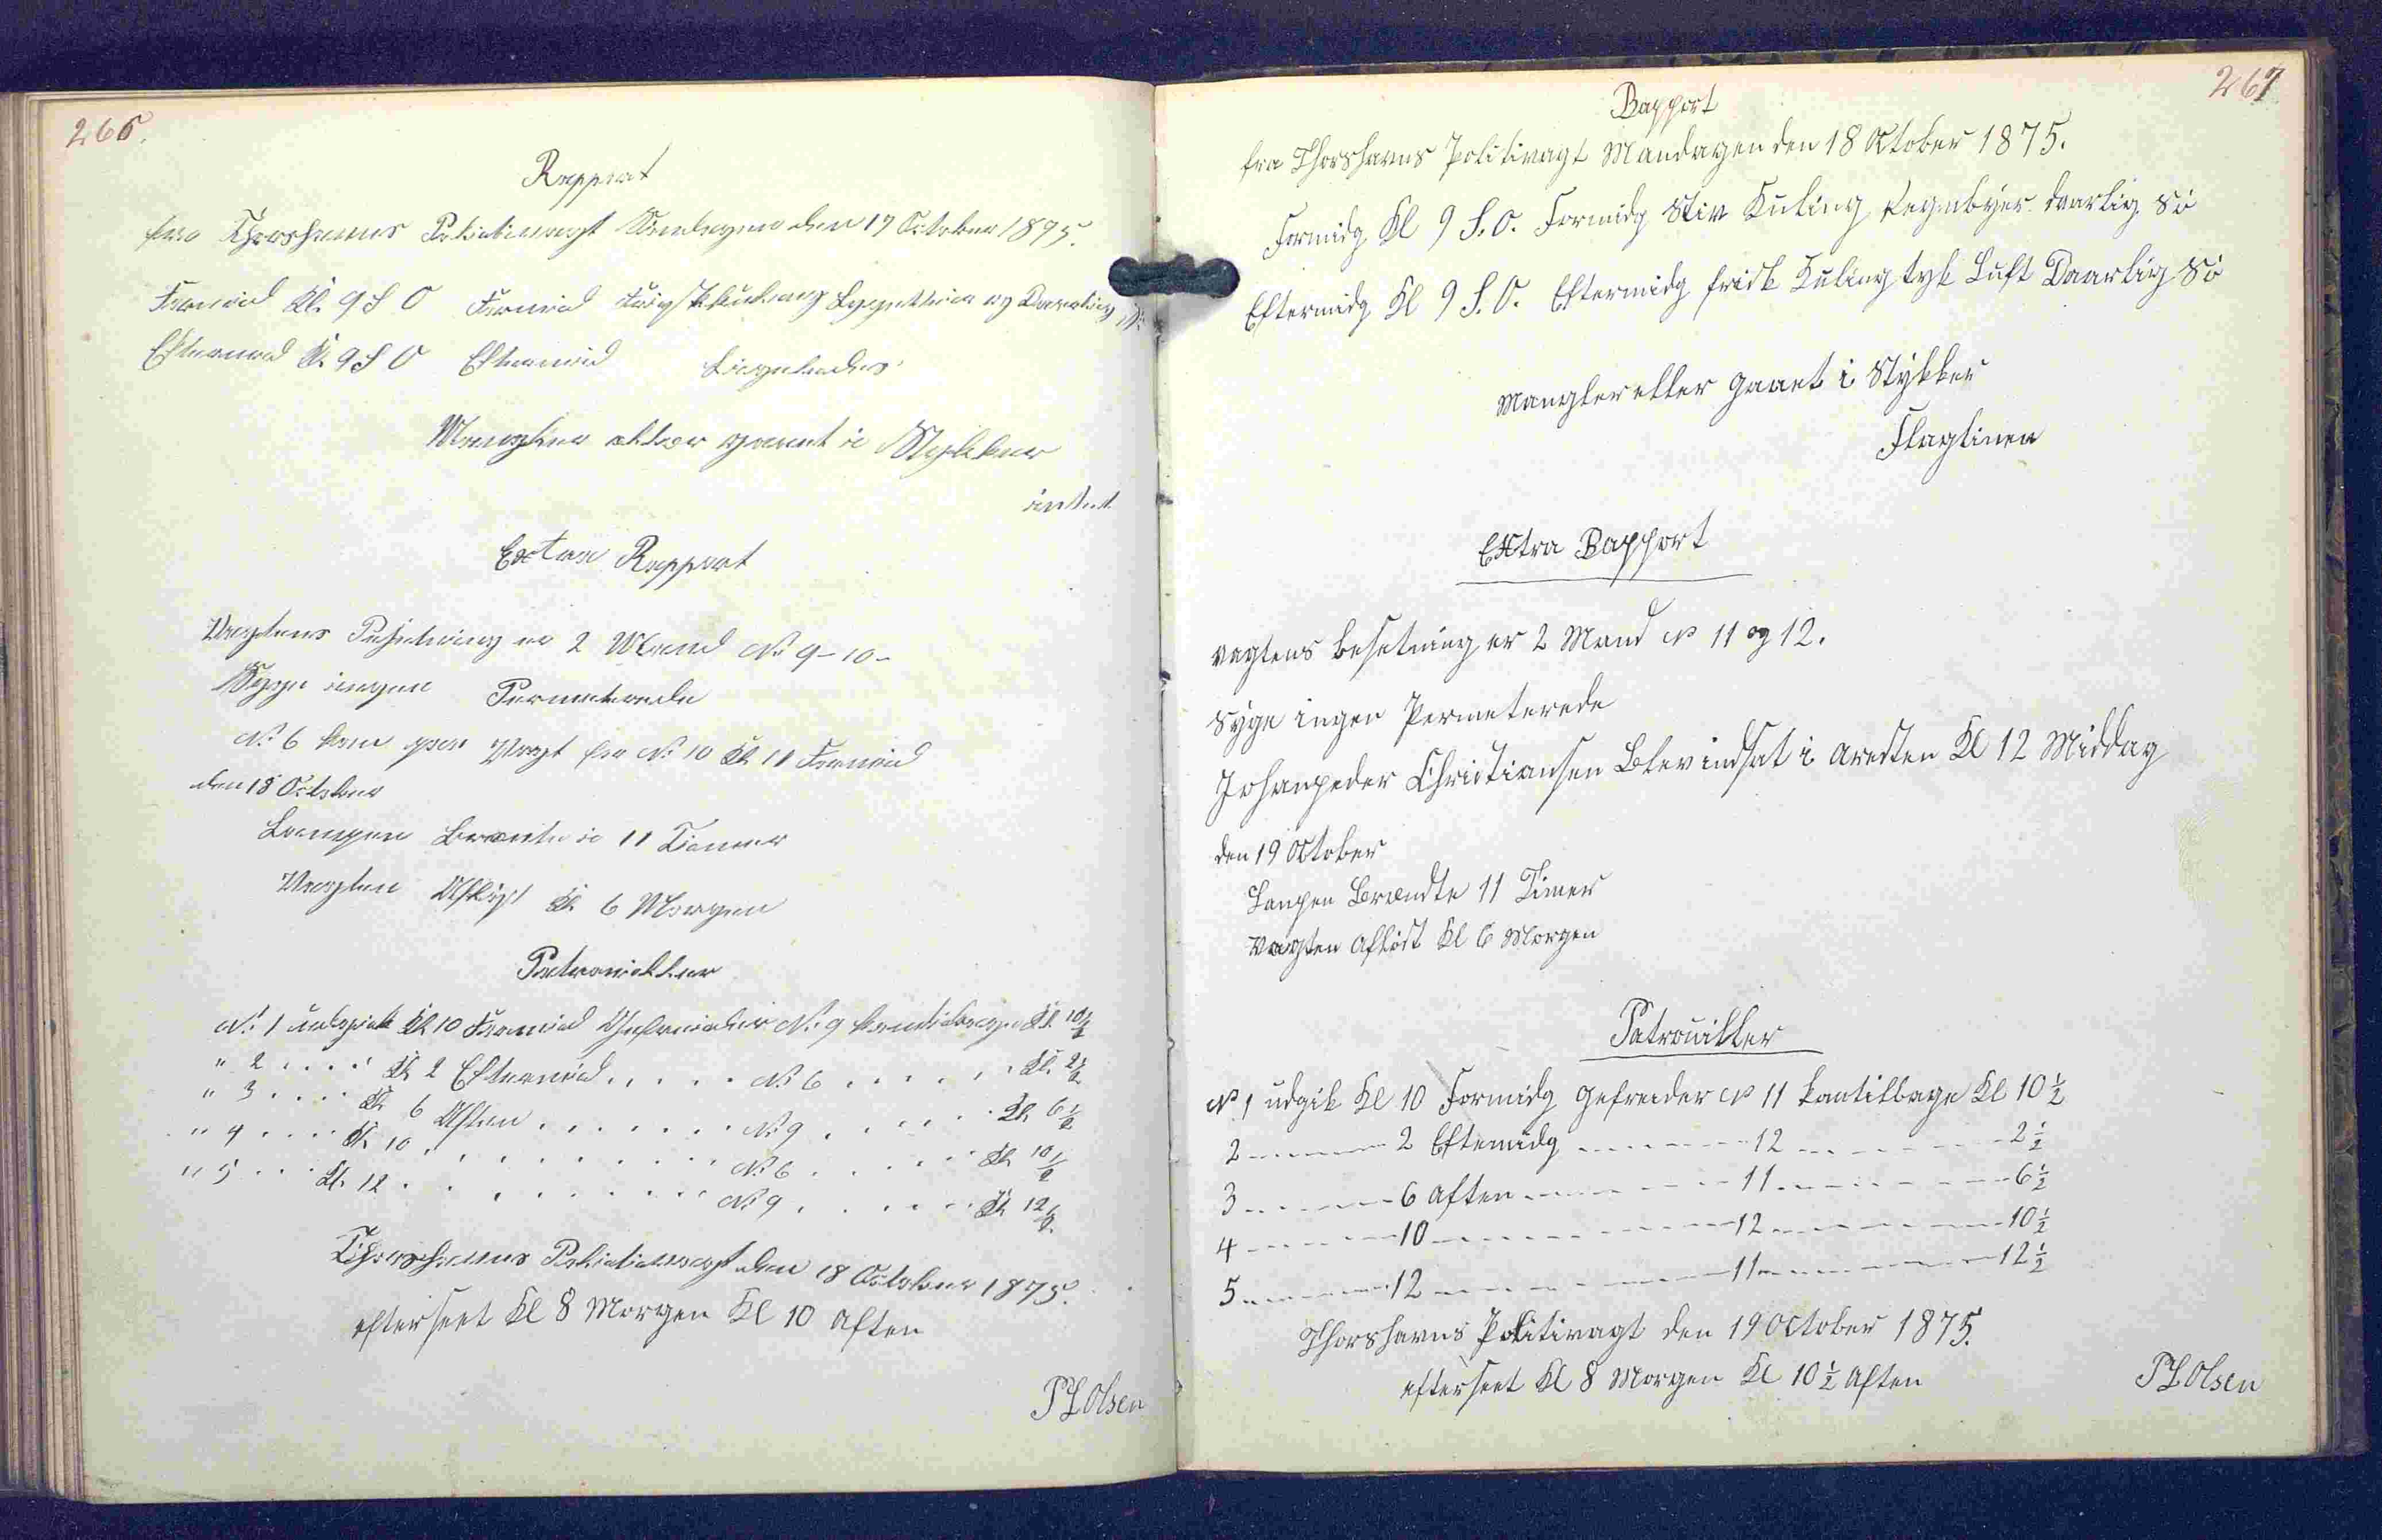 266.
Rapport
fra Thorshavns Politivagt Søndagen den 17 October 1875.
Formid Kl. 9 S O Formid frisk kuling og Daarlig Sö
Eftermid Kl. 9 S O Eftermid Ligeledes
Mangler eller gaaet i Stykker
intet
Extra Rapport
Vagtens Besetning er 2 Mand No 9-10-
Syge ingen Permeterede
No 6 kom paa Vagt for No 10 Kl 11 Formid
den 18 October
Lampen Brænte i 11 Timer
Vagten Afløst Kl. 6 Morgen
Patrouiller
No 1 udgik Kl 10 Formid Gefreider No 9 kom tilbage Kl. 10½
" 2 .... Kl 2 Eftermid .... No 6 ..... Kl. 2½
" 3 .... Kl 6 Aften ...... No 9 ..... Kl 6½
" 4 .... Kl. 10 ........ No 6 ..... Kl 10½
" 5 ... Kl. 12 ........ No 9 ..... Kl 12½
Thorshavns Politivagt den 18 October 1875.
efterseet Kl 8 Morgen Kl 10 Aften
P L Olsen
267
Rapport
fra Thorshavns Politivagt Mandagen den 18 October 1875.
Formidg Kl 9 S. O. Formidg Stiv Kuling Regnbyer daarlig Sö
Eftermidg Kl 9 S. O. Eftermidg frisk Kuling tyk Luft Daarlig Sö
Mangler eller gaaet i Stykker
Flaglinen
Extra Rapport
vagtens besetning er 2 Mand No 11 og 12.
Syge ingen Permeterede
Johanpeder Christiansen Blev indsat i Aresten Kl 12 Middag
den 19 October
Lampen Brændte 11 Timer
Vagten afløst Kl 6 Morgen
Patrouiller
No 1 udgik Kl 10 Formidg Gefreider No 11 kom tilbage Kl 10½
2 ------- 2 Eftemidg ------- 12 ------- 2½
3 ------- 6 Aften ------- 11 ------- 6½
4 ------- 10 ------- 12 ------- 10½
5 ------- 12 ------- 11 ------- 12½
Thorshavns Politivagt den 19 October 1875.
efterseet Kl 8 Morgen Kl 10½ Aften
P L Olsen